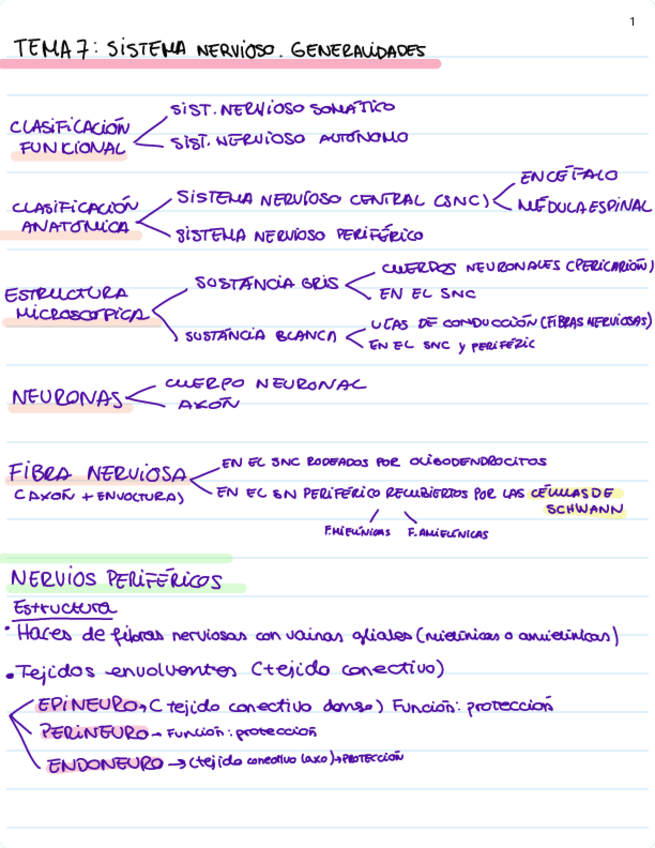 1
TEMA 7: SISTEMA NERVIOSO. GENERALIDADES
SIST. NERVIOSO SOMÁTICO
CLASIFICACIÓN
FUNCIONAL
SIST. NERVIOSO AUTÓNOMO
ENCÉFALO
CLASIFICACIÓN
ANATOMICA
SISTEMA NERVIOSO CENTRAL (SNC)
MÉDULA ESPINAL
SISTEMA NERVIOSO PERIFÉRICO
CUERDOS NEURONALES (PERICARIÓN)
SUSTANCIA GRIS
EN EL SNC
ESTRUCTURA
MICROSCOPICA
VIAS DE CONDUCCIÓN (FIBRAS NERVIOSAS)
SUSTANCIA BLANCA
EN EL SNC y PERIFÉRIC
CUERPO NEURONAL
NEURONAS
AXÓN
EN EL SNC RODEADOS POR OLIGODENDROCITOS
FIBRA NERVIOSA
(AXÓN + ENVOLTURA)
EN EL SN PERIFÉRICO RECUBIERTOS POR LAS CÉLULAS DE
SCHWANN
F.MIELÍNICAS F. AMIELÍNICAS
NERVIOS PERIFÉRICOS
Estructura
• Haces de fibras nerviosas con vainas gliales (mielínicas o amielínicas)
• Tejidos envolventes (tejido conectivo)
EPINEURO → ( tejido conectivo denso) Función: protección
PERINEURO - Función: protección
ENDONEURO → (tejido conectivo laxo) → PROTECCIÓN